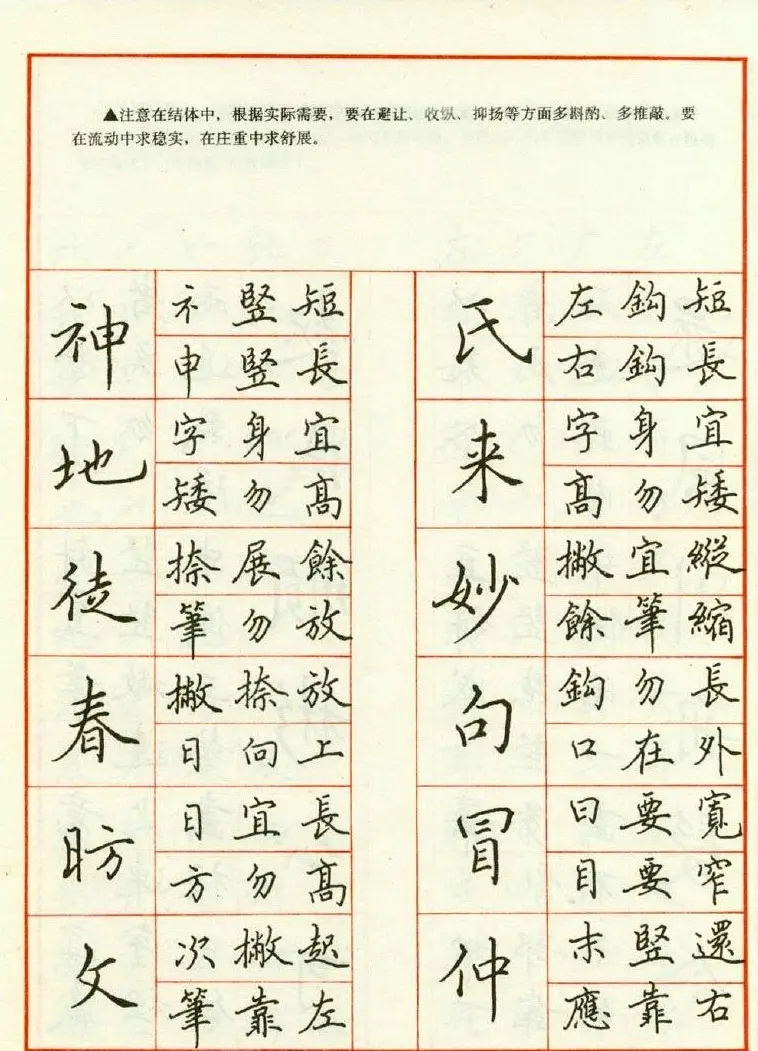 ▲注意在结体中，根据实际需要，要在避让、收纵、抑扬等方面多斟酌、多推敲。要
在流动中求稳实，在庄重中求舒展。
神
礻竖短
申竖長
地
字身宜
矮勿高
徒
捺展餘
筆勿放
春
撇捺放
日向上
昉
日宜長
方勿高
攵
次撇起
筆靠左
氏
左鈎短
右鈎長
来
字身宜
高勿矮
妙
撇宜縱
餘筆縮
句
鈎勿長
口在外
冒
曰要寬
目要窄
仲
末竪還
應靠右